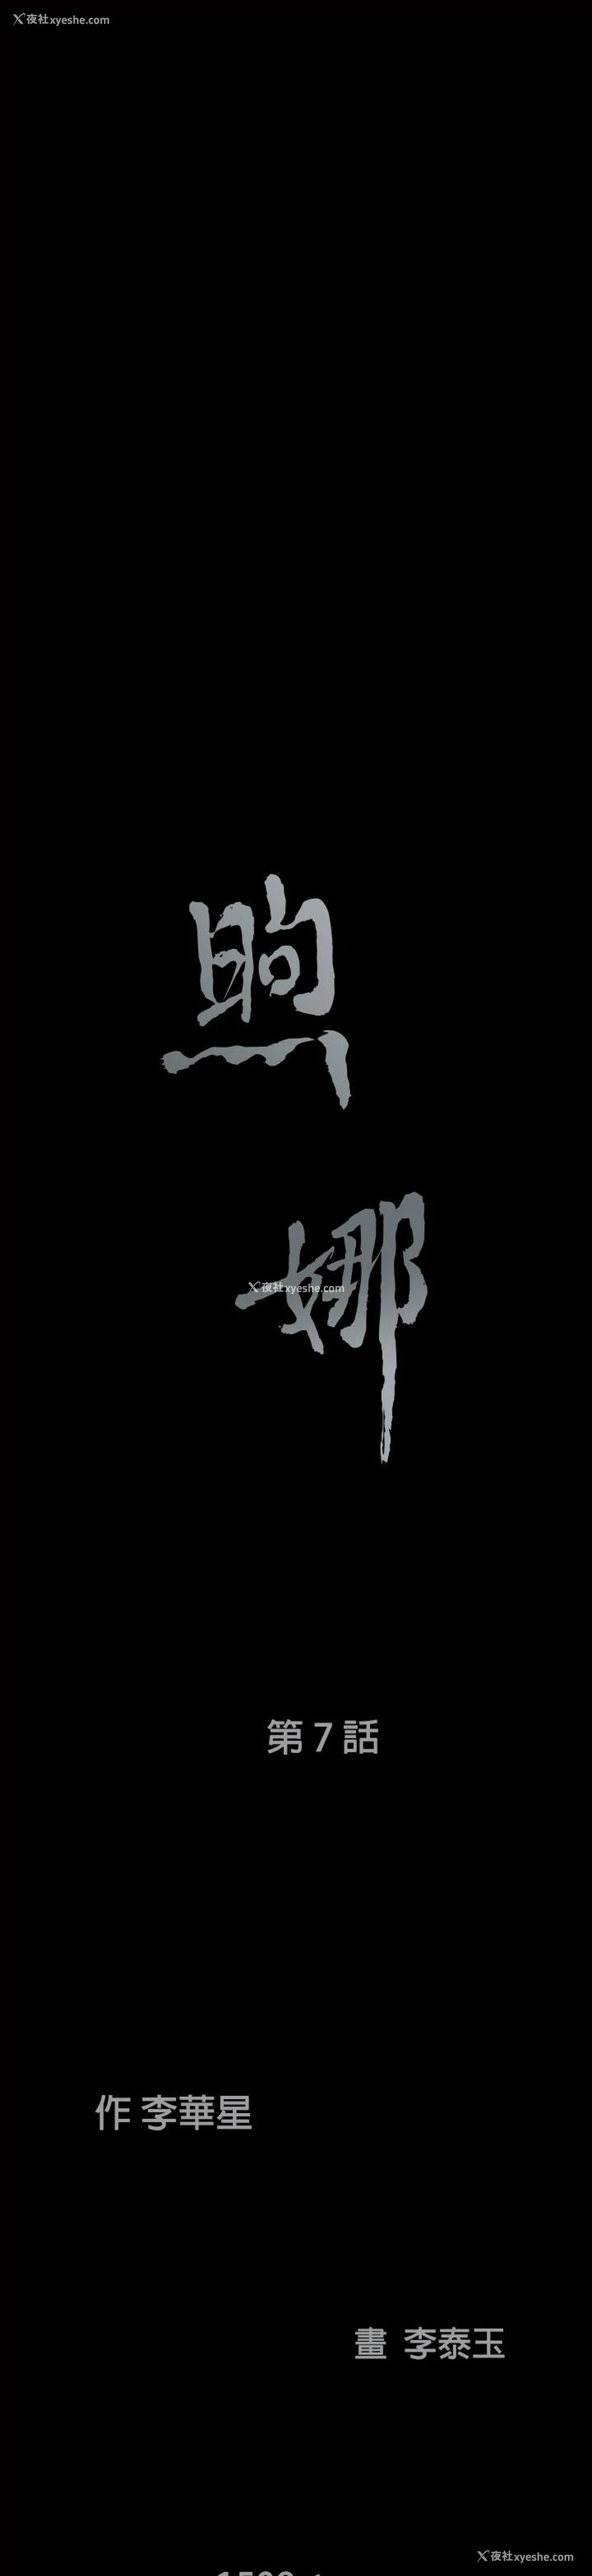 夜社xyeshe.com
煦
娜
夜社xyeshe.com
第7話
作 李華星
畫 李泰玉
夜社xyeshe.com